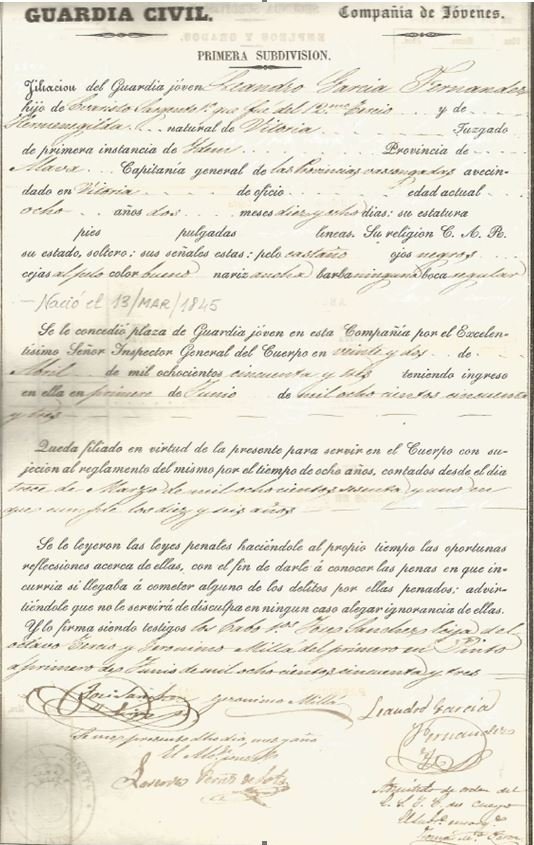 GUARDIA CIVIL.
Compañia de Jóvenes.
PRIMERA SUBDIVISION.
Filiacion del Guardia jóven Leandro Garcia Fernandez
hijo de Evaristo Sargento 1º que fué del 12mo Tercio y de
Hermenegilda natural de Vitoria Juzgado
de primera instancia de Idem Provincia de
Alava Capitanía general de las Provincias vascongadas avecin-
dado en Vitoria de oficio edad actual
ocho años dos meses diez y ocho dias: su estatura
pies pulgadas lineas. Su religion C. A. R.
su estado, soltero: sus señales estas: pelo castaño ojos negros
cejas al pelo color bueno nariz ancha barba ninguna boca regular
- Nació el 13/MAR/1845
Se le concedió plaza de Guardia jóven en esta Compañía por el Excelen-
tísimo Señor Inspector General del Cuerpo en veinte y dos de
Abril de mil ochocientos cincuenta y tres teniendo ingreso
en ella en primero de Junio de mil ocho cientos cincuenta
y tres
Queda filiado en virtud de la presente para servir en el Cuerpo con su-
jecion al reglamento del mismo por el tiempo de ocho años, contados desde el dia
trece de Marzo de mil ocho cientos sesenta y uno en
que cumple los diez y seis años
Se le leyeron las leyes penales haciéndole al propio tiempo las oportunas
reflecsiones acerca de ellas, con el fin de darle á conocer las penas en que in-
curria si llegaba á cometer alguno de los delitos por ellas penados: advir-
tiéndole que no le servirá de disculpa en ningun caso alegar ignorancia de ellas.
Y lo firma siendo testigos los Cabos 1os José Sanchez del
octavo Tercio y Geronimo Milla del primero en Pinto
a primero de Junio de mil ocho cientos cincuenta y tres
José Sanchez
Geronimo Milla
Leandro Garcia
Fernandez